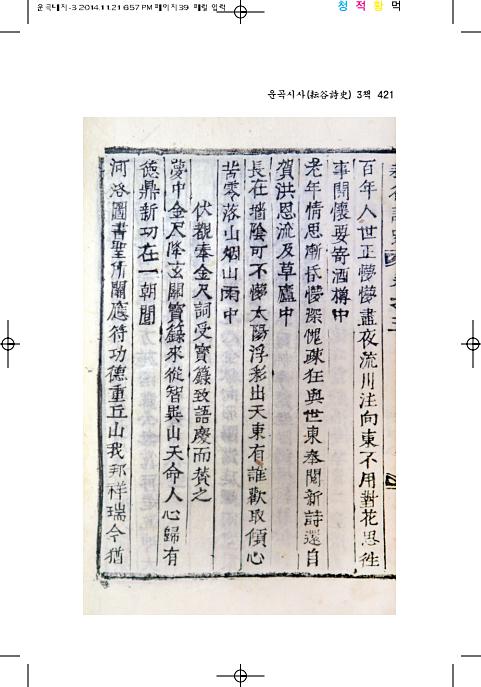 운곡대지-3 2014.11.21 6:57 PM 페이지39 매킬 입력
청 적 황 먹
운곡시사(耘谷詩史) 3책 421
百年人世正懜懜盡夜流川注向東不用對花思徃
事閒懷要寄酒樽中
老年情思漸低懜深愧疎狂與世東奉閱新詩還自
賀洪恩流及草廬中
長在墻陰可不懜太陽浮彩出天東有誰歡取傾心
苦零落山烟山雨中
伏覩奉金尺詞受寳籙致語慶而賛之
夢中金尺降玄關寳籙來從智異山天命人心歸有
德鼎新功在一朝閒
河洛圖書聖所關應符功德重丘山我邦祥瑞今猶